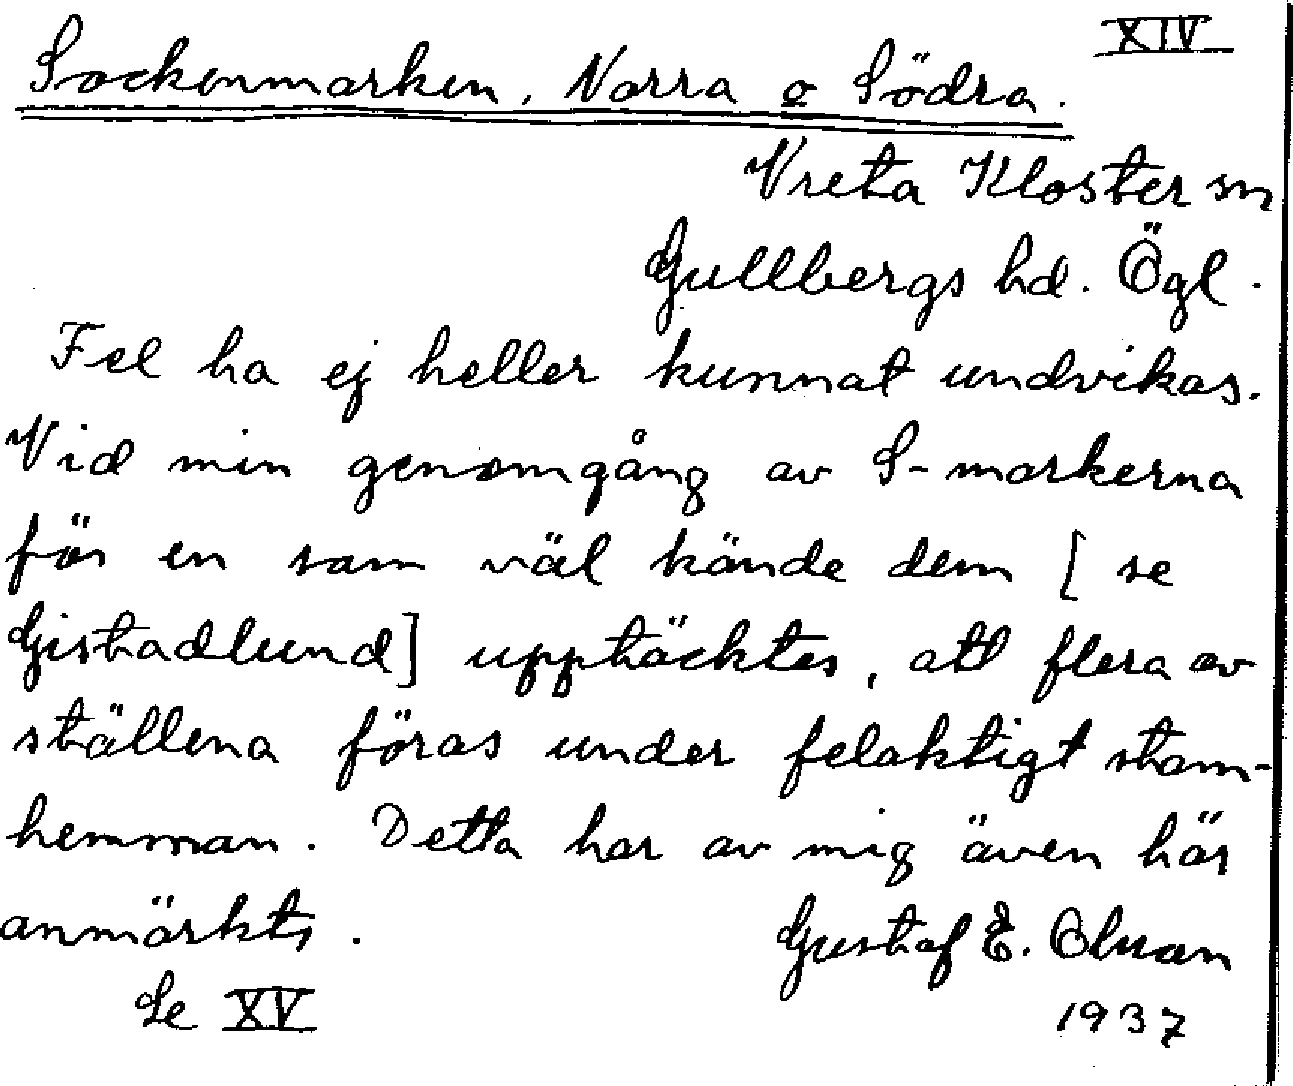 XIV
Sockenmarken, Norra o Södra.
Vreta Kloster sn
Gullbergs hd. Ögl.
Fel ha ej heller kunnat undvikas.
Vid min genomgång av S-markerna
för en som väl kände dem [se
Gistadlund] upptäcktes, att flera av
ställena föras under felaktigt stam-
hemman. Detta har av mig även här
anmärkts.
Gustaf E. Olsson
Se XV
1937